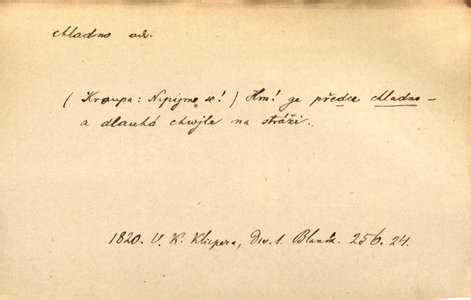 chladno adv.
(Kroupa: Napijme se!) Hm! ge předce chladno –
a dlauhá chwjle na stráži.
1820. V. K. Klicpera, Div. 1. Blaník. 256.24.